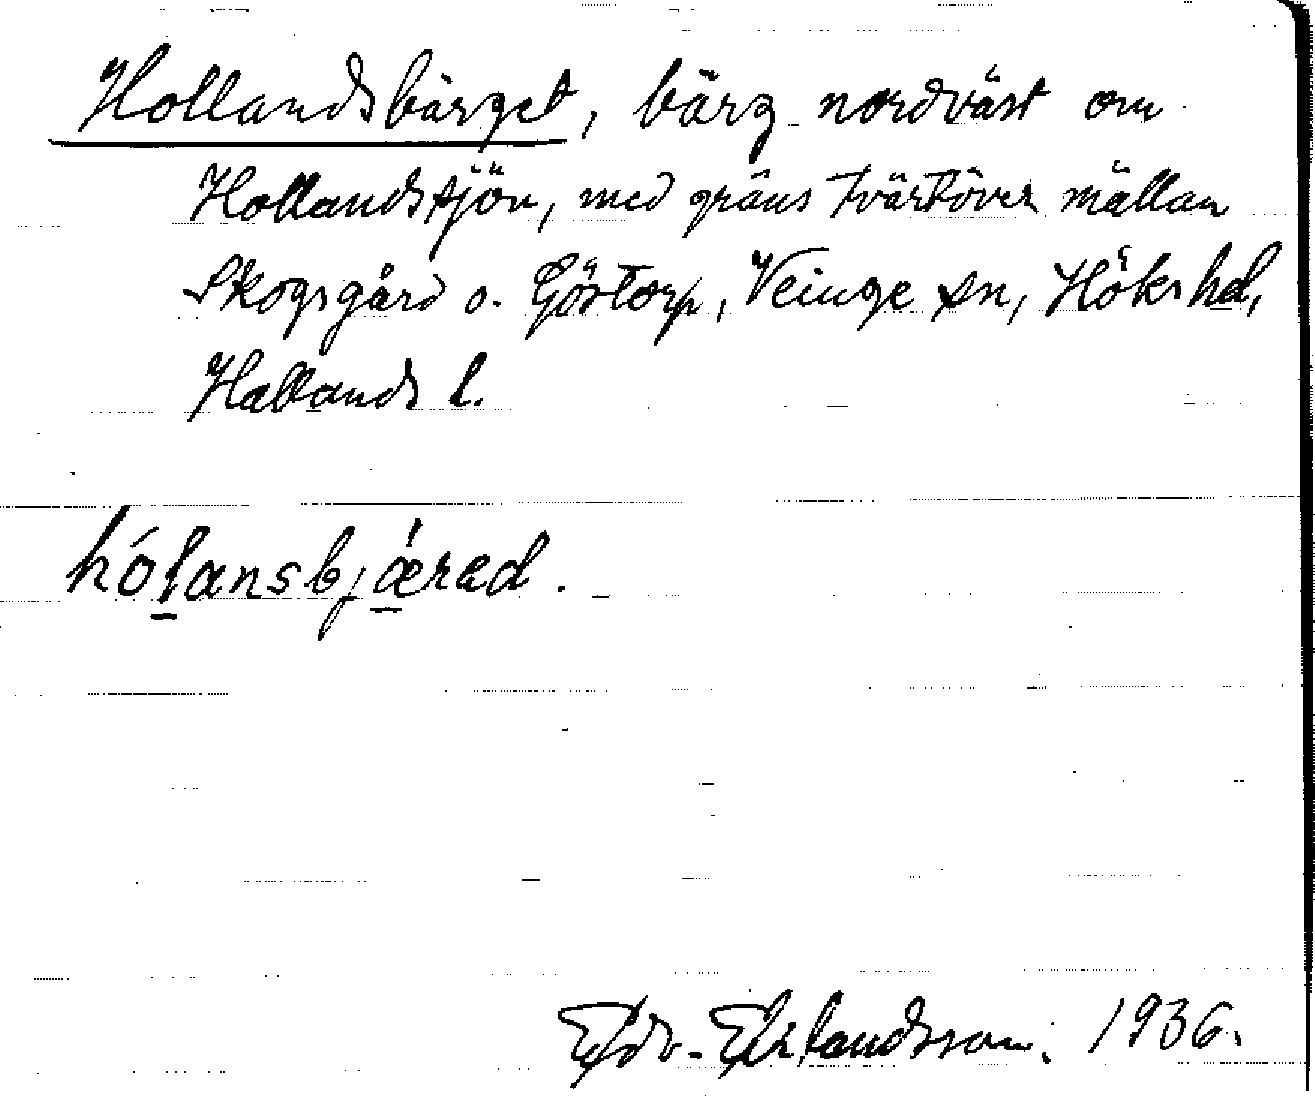 Hollandsbärget, bärg nordväst om
Hollandssjön, med gräns tvärtöver mällan
Skogsgård o. Göstorp, Veinge sn, Höks hd,
Hallands l.
hólansbjǽrad.
1936.